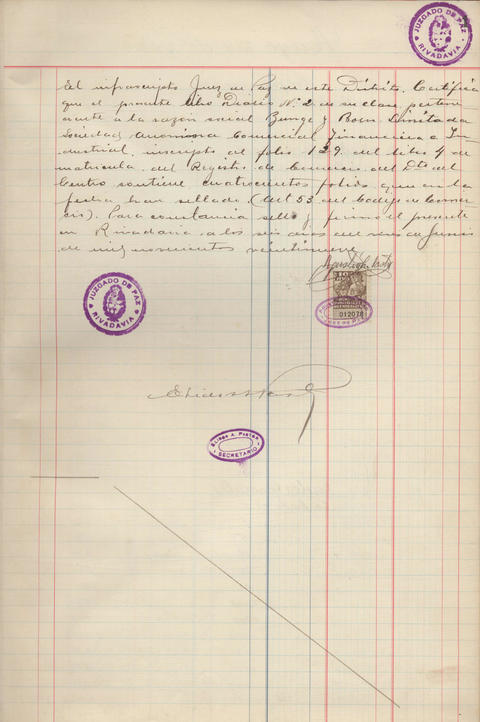 JUZGADO DE PAZ
RIVADAVIA
El infrascripto Juez de Paz de este Distrito. Certifica
que el presente libro Diario Nº 2 de su clase, perten-
eciente a la razón social Bunge y Born Limitada
Sociedad Anonima Comercial Financiera e In-
dustrial, inscripto al folio 129 del libro 4 de
matricula del Registro de Comercio del Dto del
Centro contiene cuatrocientos folios que en la
fecha han sellado. (Art 53 del Codigo de Comer-
cio). Para constancia sello y firmo el presente
en Rivadavia a los seis dias del mes de Junio
de mil novecientos veintinueve
JUZGADO DE PAZ
RIVADAVIA
10
012078
SECRETARIO